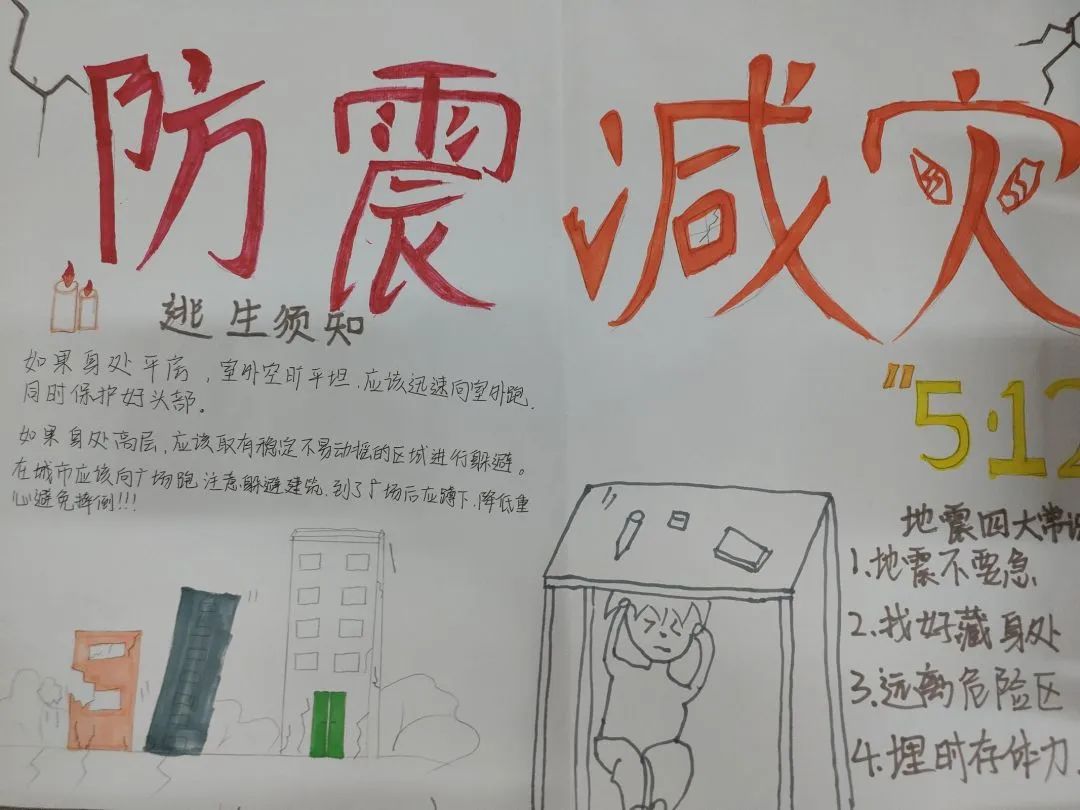 防震减灾
逃生须知
如果身处平房，室外空旷平坦，应该迅速向室外跑，
同时保护好头部。
如果身处高层，应该取有稳定不易动摇的区域进行躲避。
在城市应该向广场跑 注意躲避建筑，到了广场后应蹲下，降低重
心避免摔倒!!!
"5·12
地震四大常识
1.地震不要急
2.找好藏身处
3.远离危险区
4.埋时存体力.